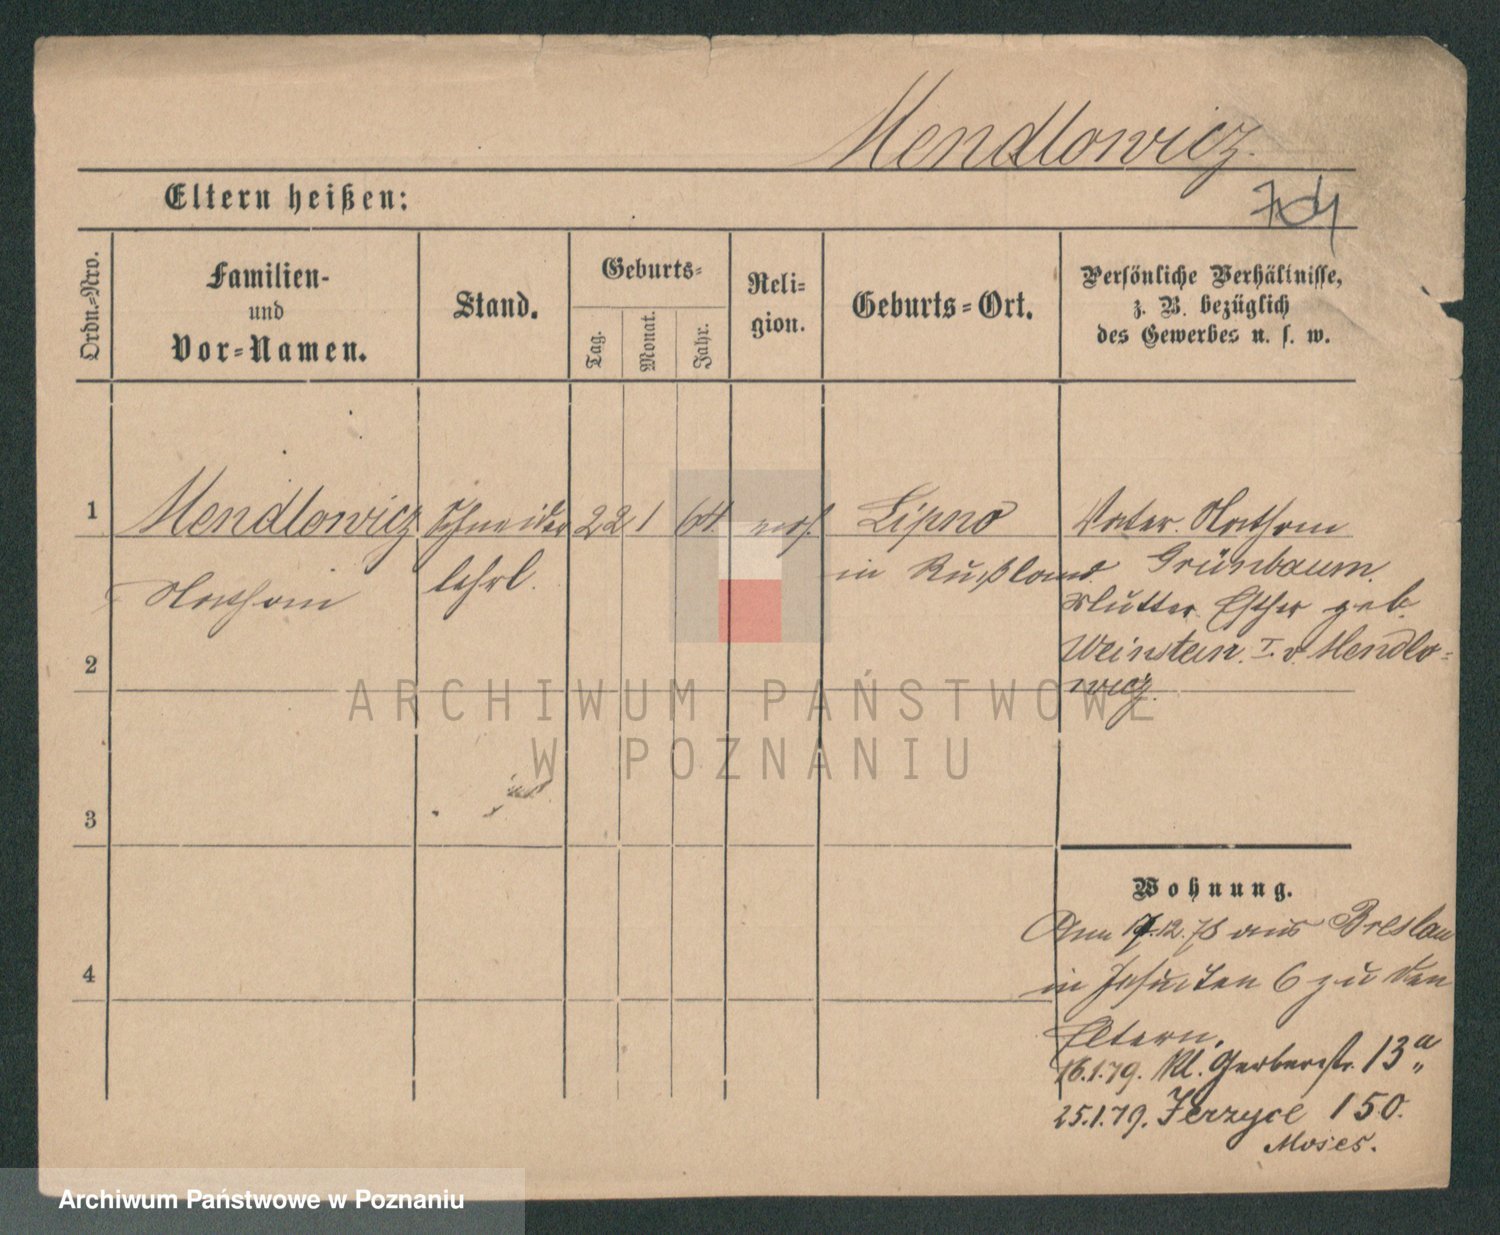 Mendlowicz.
Eltern heißen:
Ordn.=Nro.
Familien-
und
Vor=Namen.
Stand.
Geburts=
Tag.
Monat.
Jahr.
Reli=
gion.
Geburts=Ort.
Persönliche Verhältnisse,
z. B. bezüglich
des Gewerbes u. s. w.
1
Mendlowicz
Nathan
Schneider
lehrl.
22
1
64
mos.
Lipno
in Rußland.
Vater Nathan
Grünbaum.
Mutter Esther geb.
Weinstein. I. v. Mendlo=
wicz.
2
3
4
Wohnung.
Am 17.12.78 aus Breslau
in Jesuiten 6 zu den
Eltern.
16.1.79. Kl. Gerberstr. 13a
25.1.79. Jerzyce 150.
Moses.
ARCHIWUM PAŃSTWOWE
W POZNANIU
Archiwum Państwowe w Poznaniu